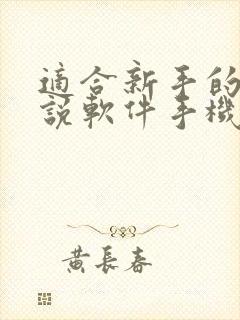 適合新手的
說軟件手機
黃長春